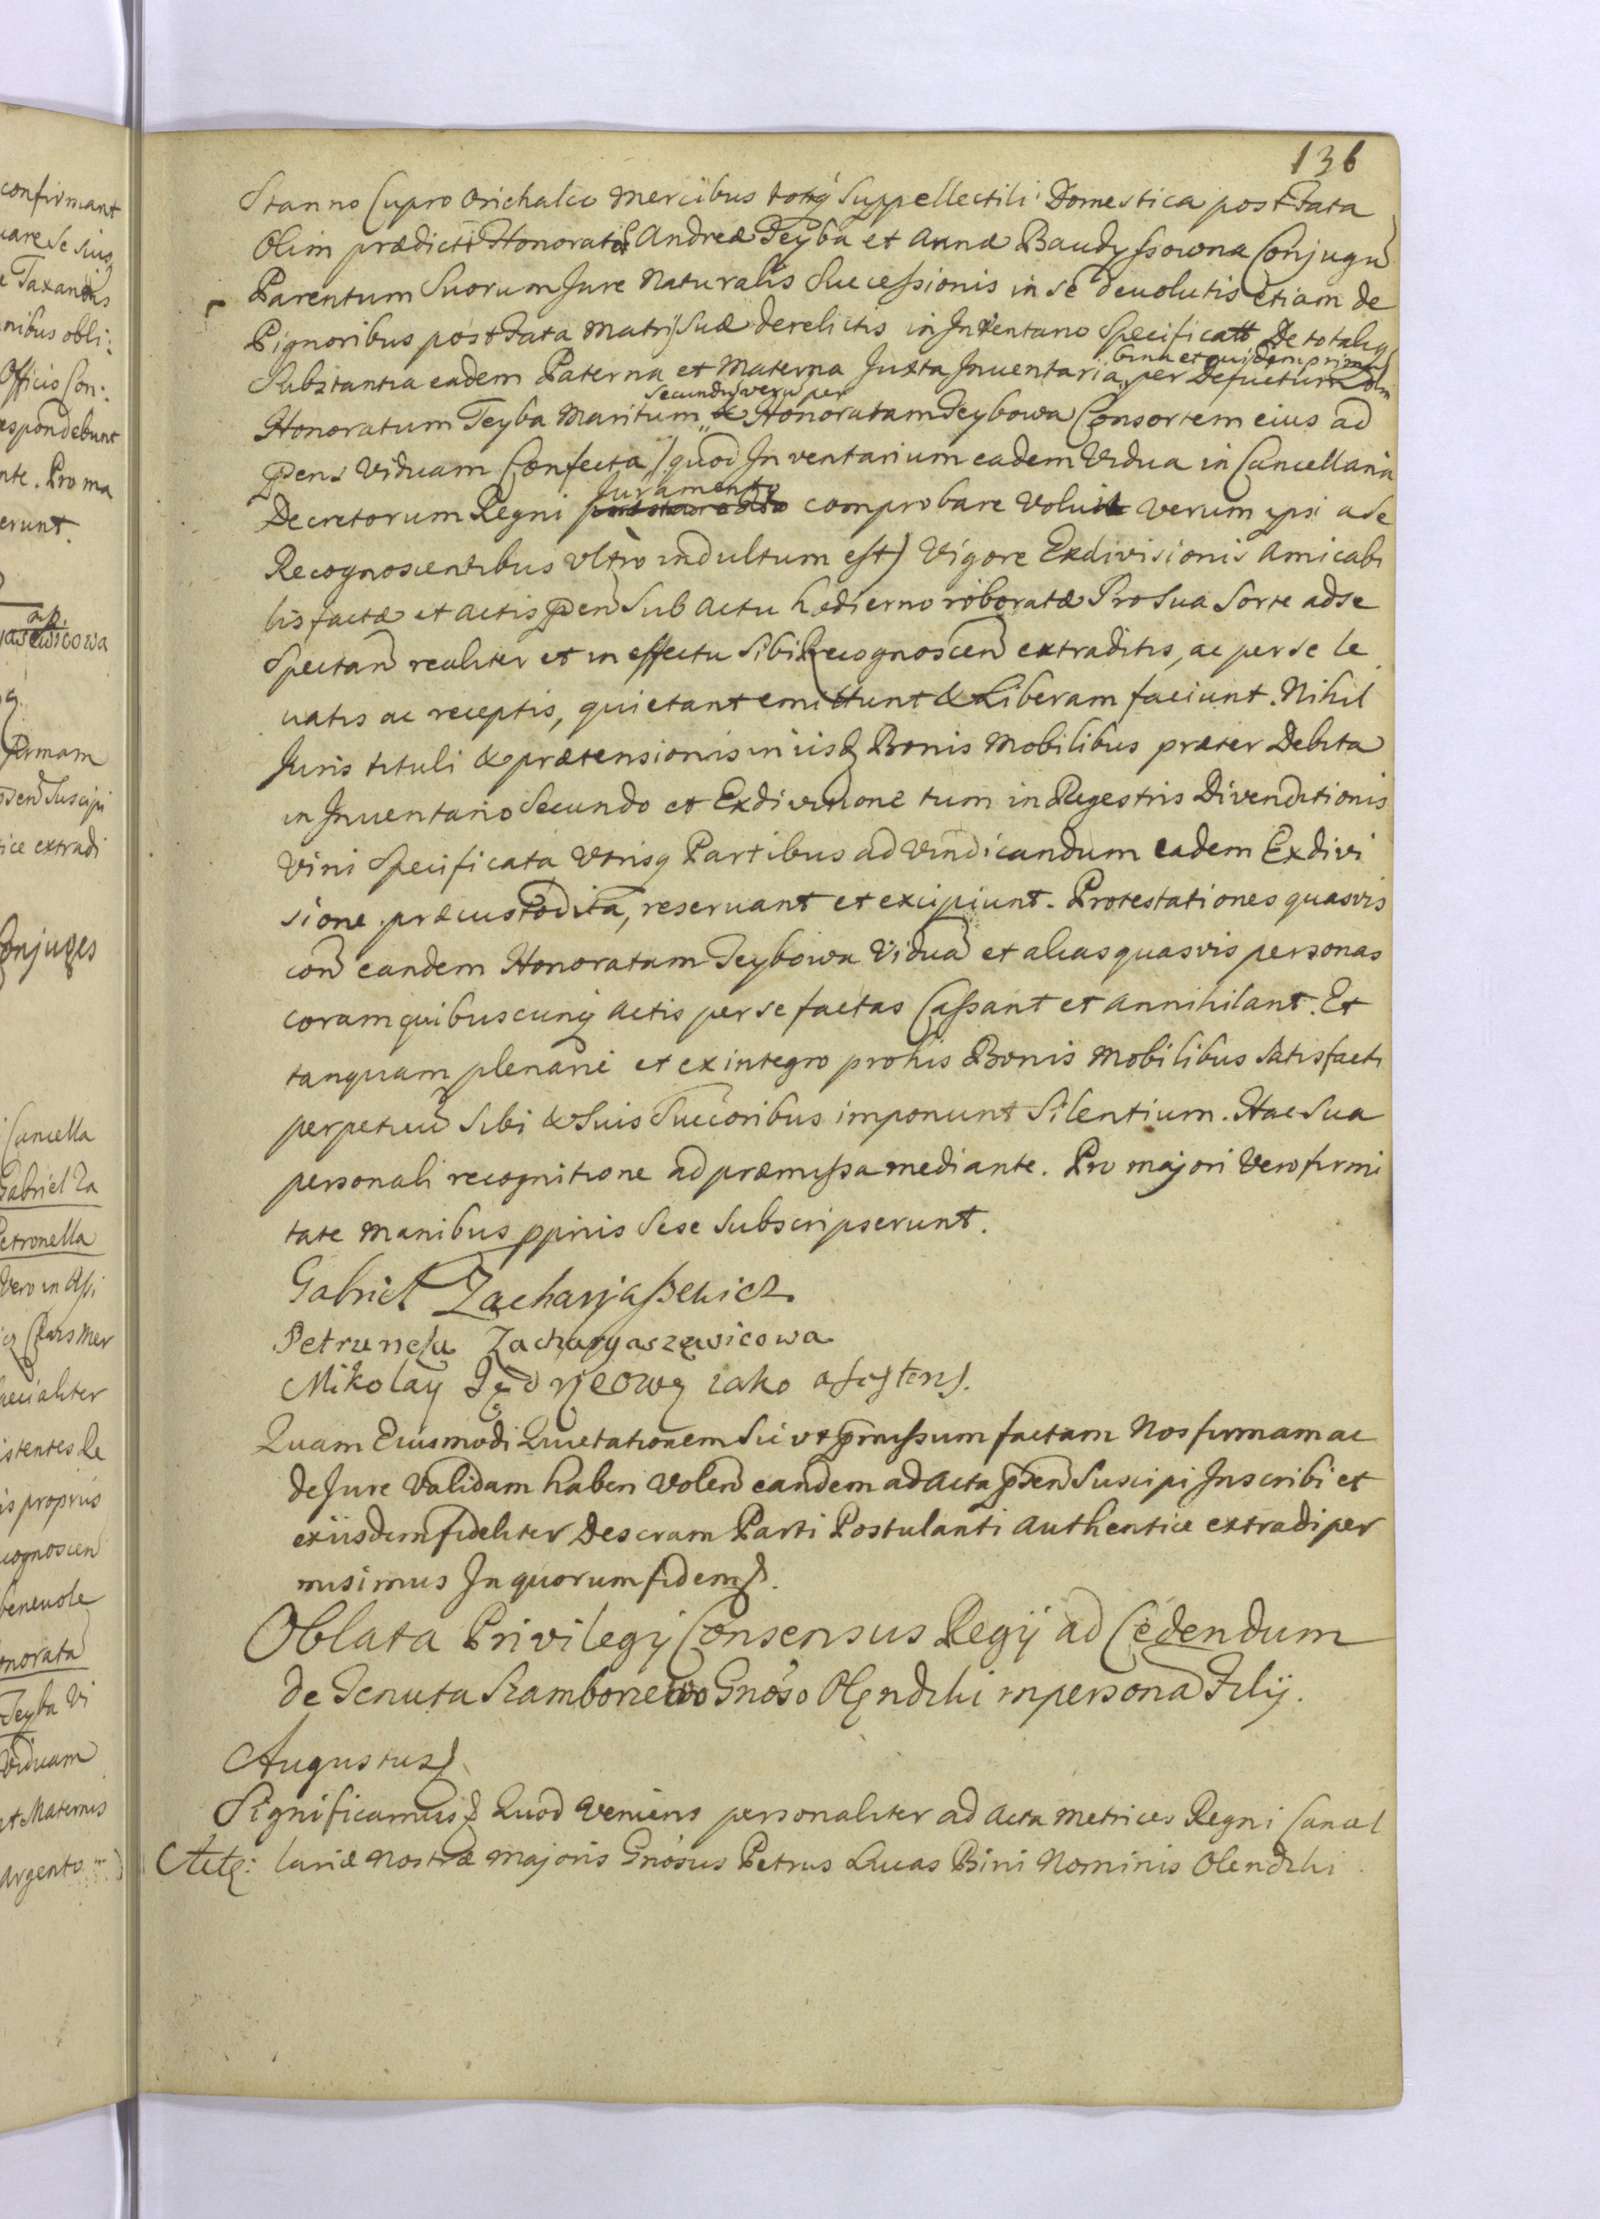 136
Stanno Cupro Orichalco Mercibus totaq Suppellectili Domestica post Fata
Olim prædicti Honorator Andreæ Teyba et Annæ Baudyssowna Conjugu
Parentum Suorum Jure Naturalis Successionis in se devolutis etiam de
Pignoribus post Fata Matris Suæ derelictis in Inventario Specificatt De totaliq
bina et quidem primu
Substantia eadem Paterna et Materna Juxta Inuentaria per Defuctum Olim
Secundu veru per
Honoratum Teyba Maritum & Honoratam Teybowa Consortem eius ad
pens Viduam Confecta /quod Inventarium eadem Vidua in Cancellaria
Juramento
Decretorum Regni comprobare Voluit Verum ipsi a se
Recognoscentibus Ultro indultum est/ Vigore Exdivisionis Amicabi
lis factæ et actis pen Sub Actu hodierno roboratæ Pro Sua Sorte ad se
Spectan realiter et in effectu Sibi Recognoscen extraditis, ac per se le
uatis ac receptis, quietant emittunt & Liberam faciunt. Nihil
Juris tituli & prætensionis in iisd Bonis Mobilibus præter Debita
in Inuentario Secundo et Exdivisione tum in Regestris Divenditionis
Vini Specificata Utrisq Partibus ad Vindicandum eadem Exdivi
sione præcustodita, reseruant et excipiunt. Protestationes quasvis
con eandem Honoratam Teybowa Vidua et alias quasvis personas
coram quibuscunq actis per se factas Cassant et Annihilant. Et
tanquam plenarie et ex integro pro his Bonis Mobilibus Satisfacti
perpetuu Sibi & Suis Succoribus imponunt Silentium. Hac Sua
personali recognitione ad præmissa mediante. Pro majori Vero firmi
tate Manibus ppriis Sese Subscripserunt.
Gabriel Zacharjaszewicz
Petrunela Zacharyaszewicowa
Mikolay iako asistens.
Quam Eiusmodi Quietationem Sic ut pmissum factam Nos firmam ac
de Jure Validam haberi Volen eandem ad Acta psen Suscipi Inscribi et
ex iisdem fideliter Descram Parti Postulanti Authentice extradi per
misimus In quorum fidem
Oblata Privilegij Consensus Regij ad Cedendum
de Tenuta Gnoso Olendzki in persona Filij.
Augustus
Significamus Quod Veniens personaliter ad Acta Metrices Regni Cancel
Acta: lariæ Nostræ Majoris Gnosus Petrus Lucas Bini Nominis Olendzki
confirmant
e Taxandis
nibus obli:
Officio Con:
espondebunt
nte. Pro ma
erunt.
firmam
sen Suscipi
ice extradi
Conjuges
Cancella
Gabriel Za
Petronella
Vero in Assi
pecialiter
istentes Re
is proprijs
cognoscen
beneuole
onorata
Teyba Vi
Viduam
et Maternis
Argento